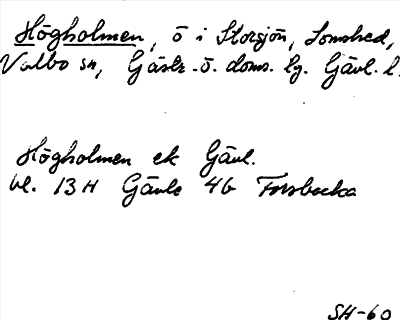 Högholmen, ö i Storsjön,
Valbo sn, Gästr. ö. doms. hg. Gävl. l.
Högholmen ek Gävl.
bl. 13H Gävle 4b Forsbacka
SH-60